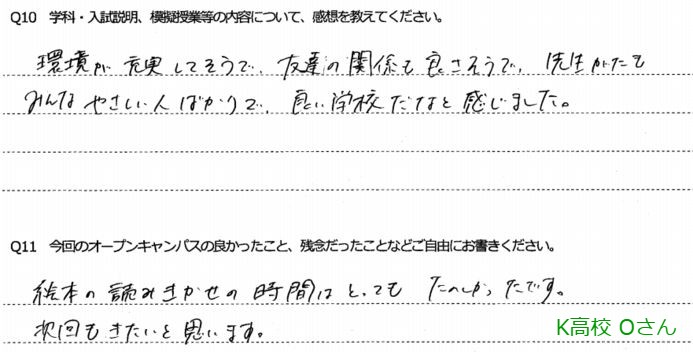 Q10 学科・入試説明、模擬授業等の内容について、感想を教えてください。
環境が充実してそうで、友達の関係も良さそうで、先生がたも
みんなやさしい人ばかりで、良い学校だなと感じました。
Q11 今回のオープンキャンパスの良かったこと、残念だったことなどご自由にお書きください。
絵本の読みきかせの時間はとっても たのしかったです。
次回もきたいと思います。
K高校 Oさん